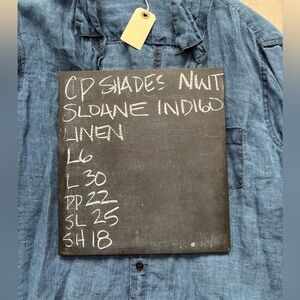 CP SHADES NWT
SLOANE INDIGO
LINEN
LG
L 30
PP 22
SL 25
SH 18